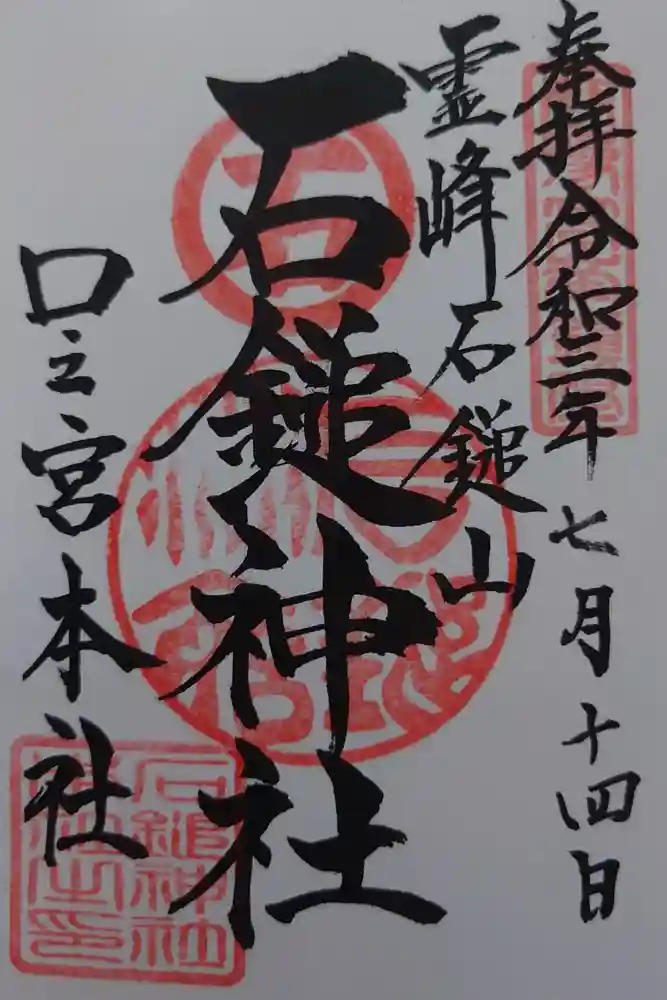 奉拝令和三年七月十四日
霊峰石鎚山
石鎚神社
口之宮本社
石鎚神社